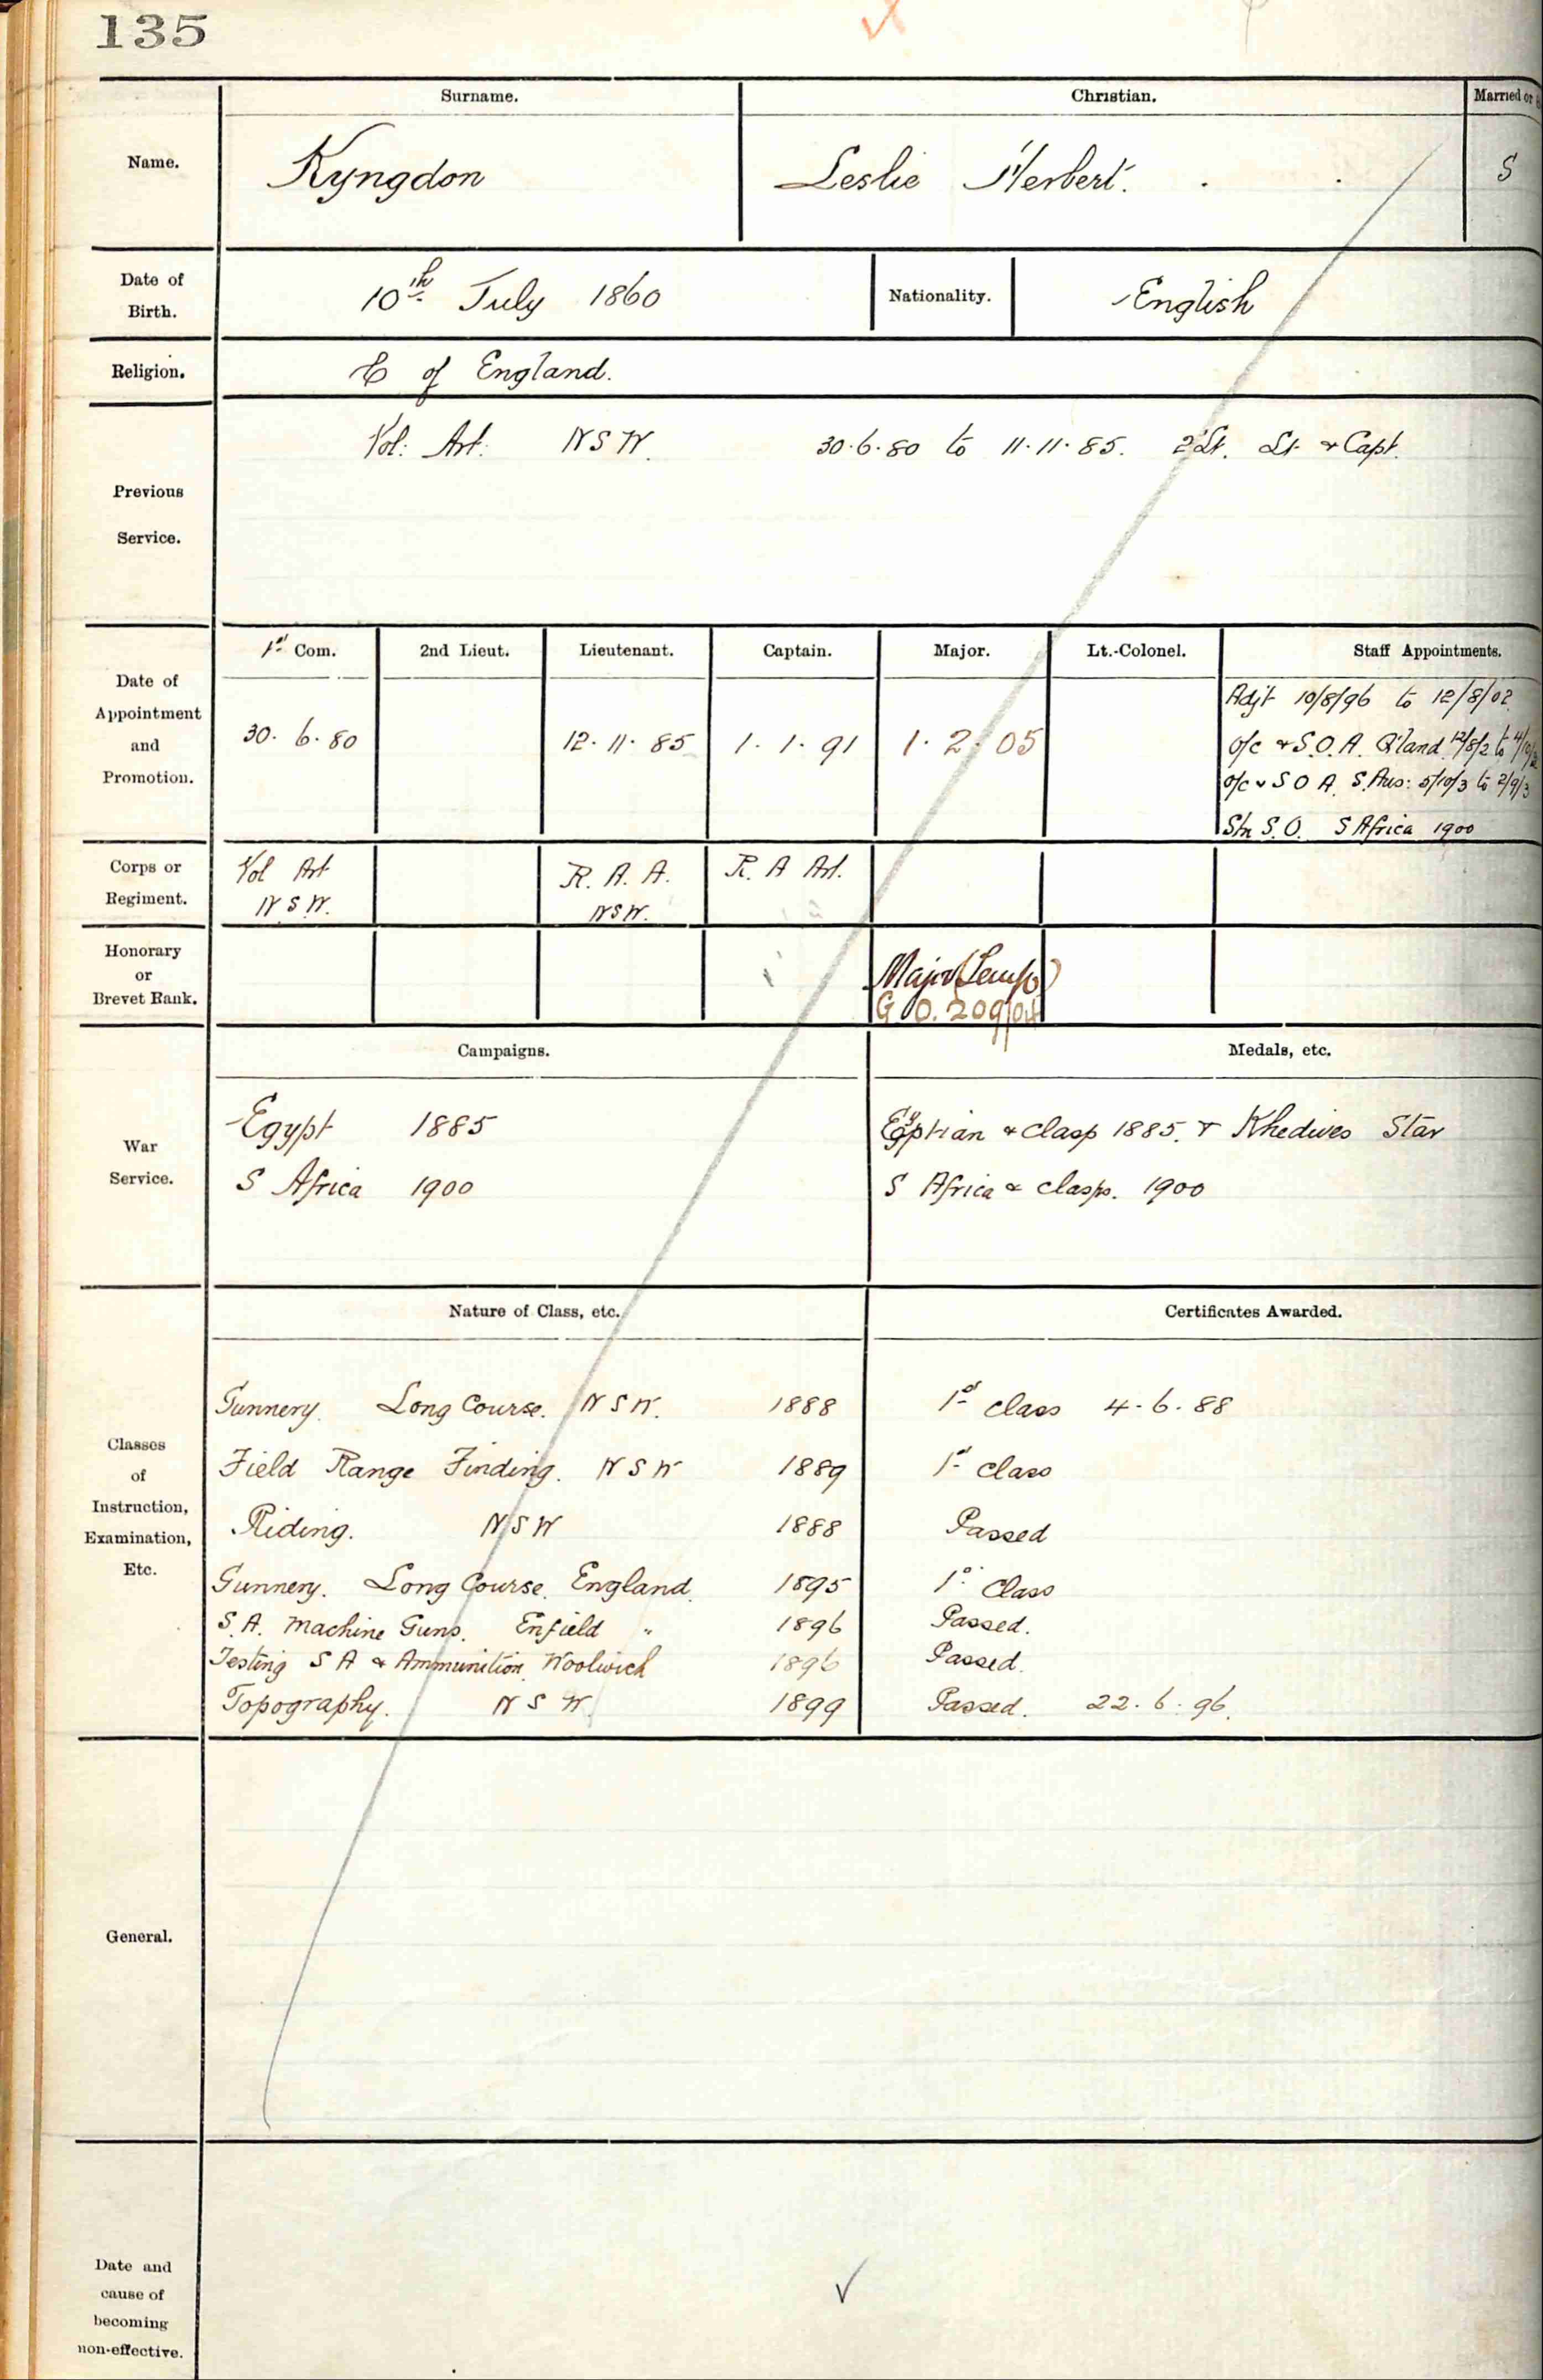 135
Surname. Christian. Married or
Name. Kyngdon Leslie Herbert. S
Date of Birth. 10th July 1860 Nationality. English
Religion. C of England.
Previous Service. Vol: Art: NSW. 30.6.80 to 11.11.85. 2 Lt. Lt & Capt.
1st Com. 2nd Lieut. Lieutenant. Captain. Major. Lt.-Colonel. Staff Appointments.
Date of Appointment and Promotion.
30.6.80 12.11.85 1.1.91 1.2.05
Adjt 10/8/96 to 12/8/02
O/c & S.O.A. Q'land 12/8/2 to
O/c & S O A. S. Aus: 5/10/3 to 2/9/3
Stn S.O. S Africa 1900
Corps or Regiment.
Vol Art R. A. A. R. A Art.
NSW. NSW.
Honorary or Brevet Rank.
Major (Temp)
G O. 209/04
Campaigns. Medals, etc.
War Service.
Egypt 1885 Egyptian & Clasp 1885. & Khedives Star
S Africa 1900 S Africa & clasps. 1900
Nature of Class, etc. Certificates Awarded.
Classes of Instruction, Examination, Etc.
Gunnery. Long Course. NSW. 1888 1st Class 4.6.88
Field Range Finding. NSW 1889 1st Class
Riding. NSW 1888 Passed
Gunnery. Long Course. England. 1895 1st Class
S.A. Machine Guns. Enfield " 1896 Passed.
Testing S A & Ammunition Woolwich 1896 Passed.
Topography. NSW 1899 Passed. 22.6.96.
General.
Date and cause of becoming non-effective.